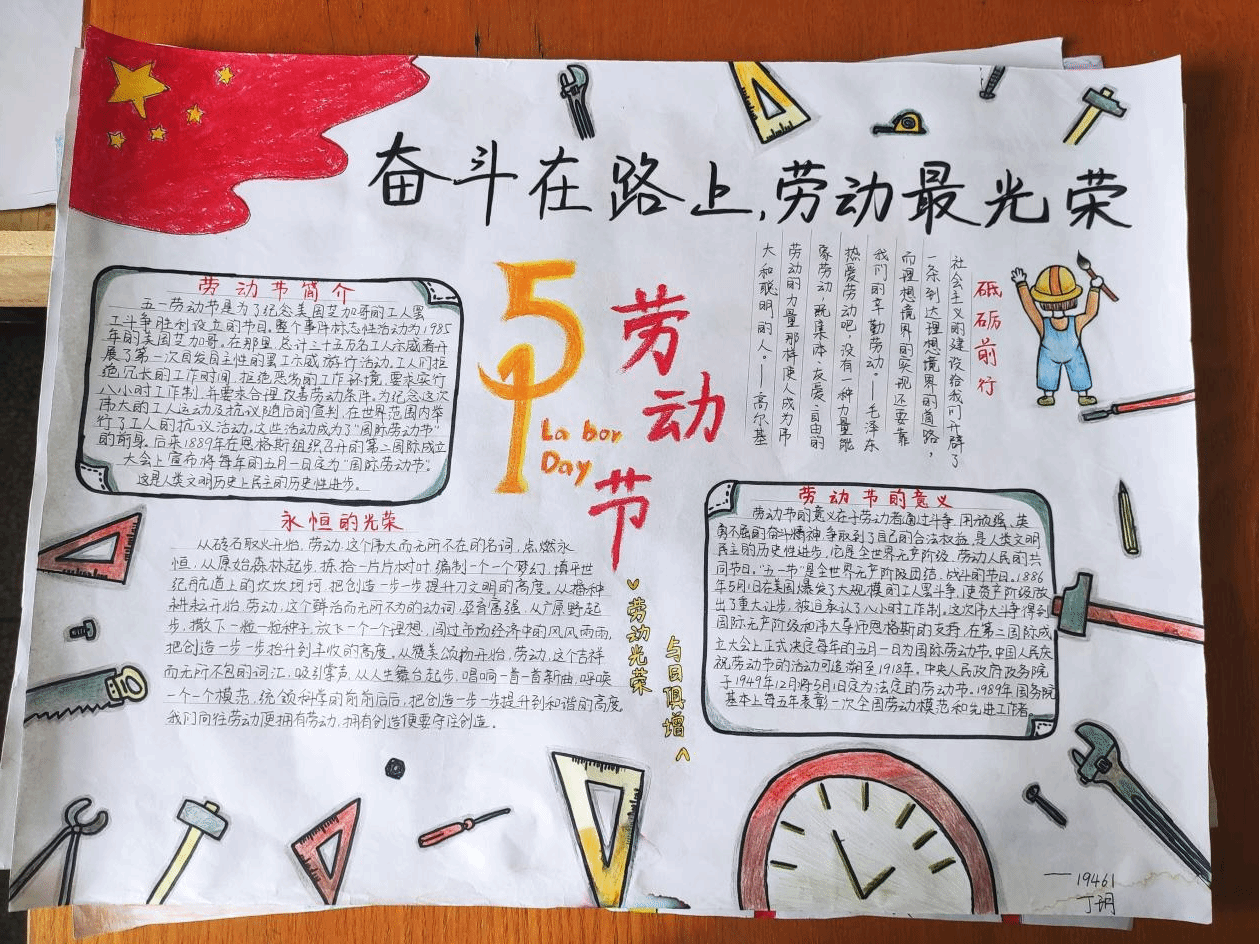 奋斗在路上,劳动最光荣
劳动节简介
五一劳动节是为了纪念美国艾加哥的工人罢
工斗争胜利设立的节目。整个事件标志性活动为1985
年的美国芝加哥,在那里,总计三十五万名工人示威者开
展了第一次自发自主性的罢工示威游行活动,工人们拒
绝冗长的工作时间,拒绝恶劣的工作环境,要求实行
八小时工作制,并要求合理改善劳动条件。为纪念这次
伟大的工人运动及抗议随后的宣判,在世界范围内举
行了工人的抗议活动。这些活动成为了“国际劳动节”
的前身。后来1889年在恩格斯组织召开的第二国际成立
大会上宣布将每年的五月一日定为“国际劳动节”。
这是人类文明历史上民主的历史性进步。
51
Labor
Day
劳动节
砥砺前行
社会主义的建设给我们开辟了
一条到达理想境界的道路,
而理想境界的实现还要靠
我们的辛勤劳动。——毛泽东
热爱劳动吧,没有一种力量能
象劳动,既集体、友爱、自由的
劳动的力量那样使人成为伟
大和聪明的人。——高尔基
永恒的光荣
从砖石取火开始,劳动,这个伟大而无所不在的名词,点燃永
恒,从原始森林起步,拣拾一片片树叶,编制一个一个梦幻,填平世
纪航道上的坎坎坷坷,把创造一步一步提升为文明的高度。从播种
耕耘开始,劳动,这个鲜活而无所不为的动词,孕育富强,从广原野起
步,撒下一粒一粒种子,放飞一个一个理想,闯过市场经济中的风风雨雨,
把创造一步一步抬升到丰收的高度。从赞美颂扬开始,劳动,这个吉祥
而无所不包的词汇,吸引掌声,从人生舞台起步,唱响一首一首新曲,呼唤
一个一个模范,统领科学的前前后后,把创造一步一步提升到和谐的高度。
我们向往劳动便拥有劳动,拥有创造便要守住创造。
劳动光荣
与日俱增
劳动节的意义
劳动节的意义在于劳动者通过斗争,用顽强、英
勇不屈的奋斗精神,争取到了自己的合法权益,是人类文明
民主的历史性进步,它是全世界无产阶级、劳动人民的共
同节日。“五一节”是全世界无产阶段团结、战斗的节日。1886
年5月1日在美国爆发了大规模的工人罢斗争,使资产阶级做
出了重大让步,被迫承认了八小时工作制。这次伟大斗争得到
国际无产阶级和伟大导师恩格斯的支持,在第二国际成
立大会上正式决定每年的五月一日为国际劳动节。中国人民庆
祝劳动节的活动可追溯至1918年。中央人民政府政务院
于1949年12月将5月1日定为法定的劳动节。1989年国务院
基本上每五年表彰一次全国劳动模范和先进工作者
一19461
丁玥